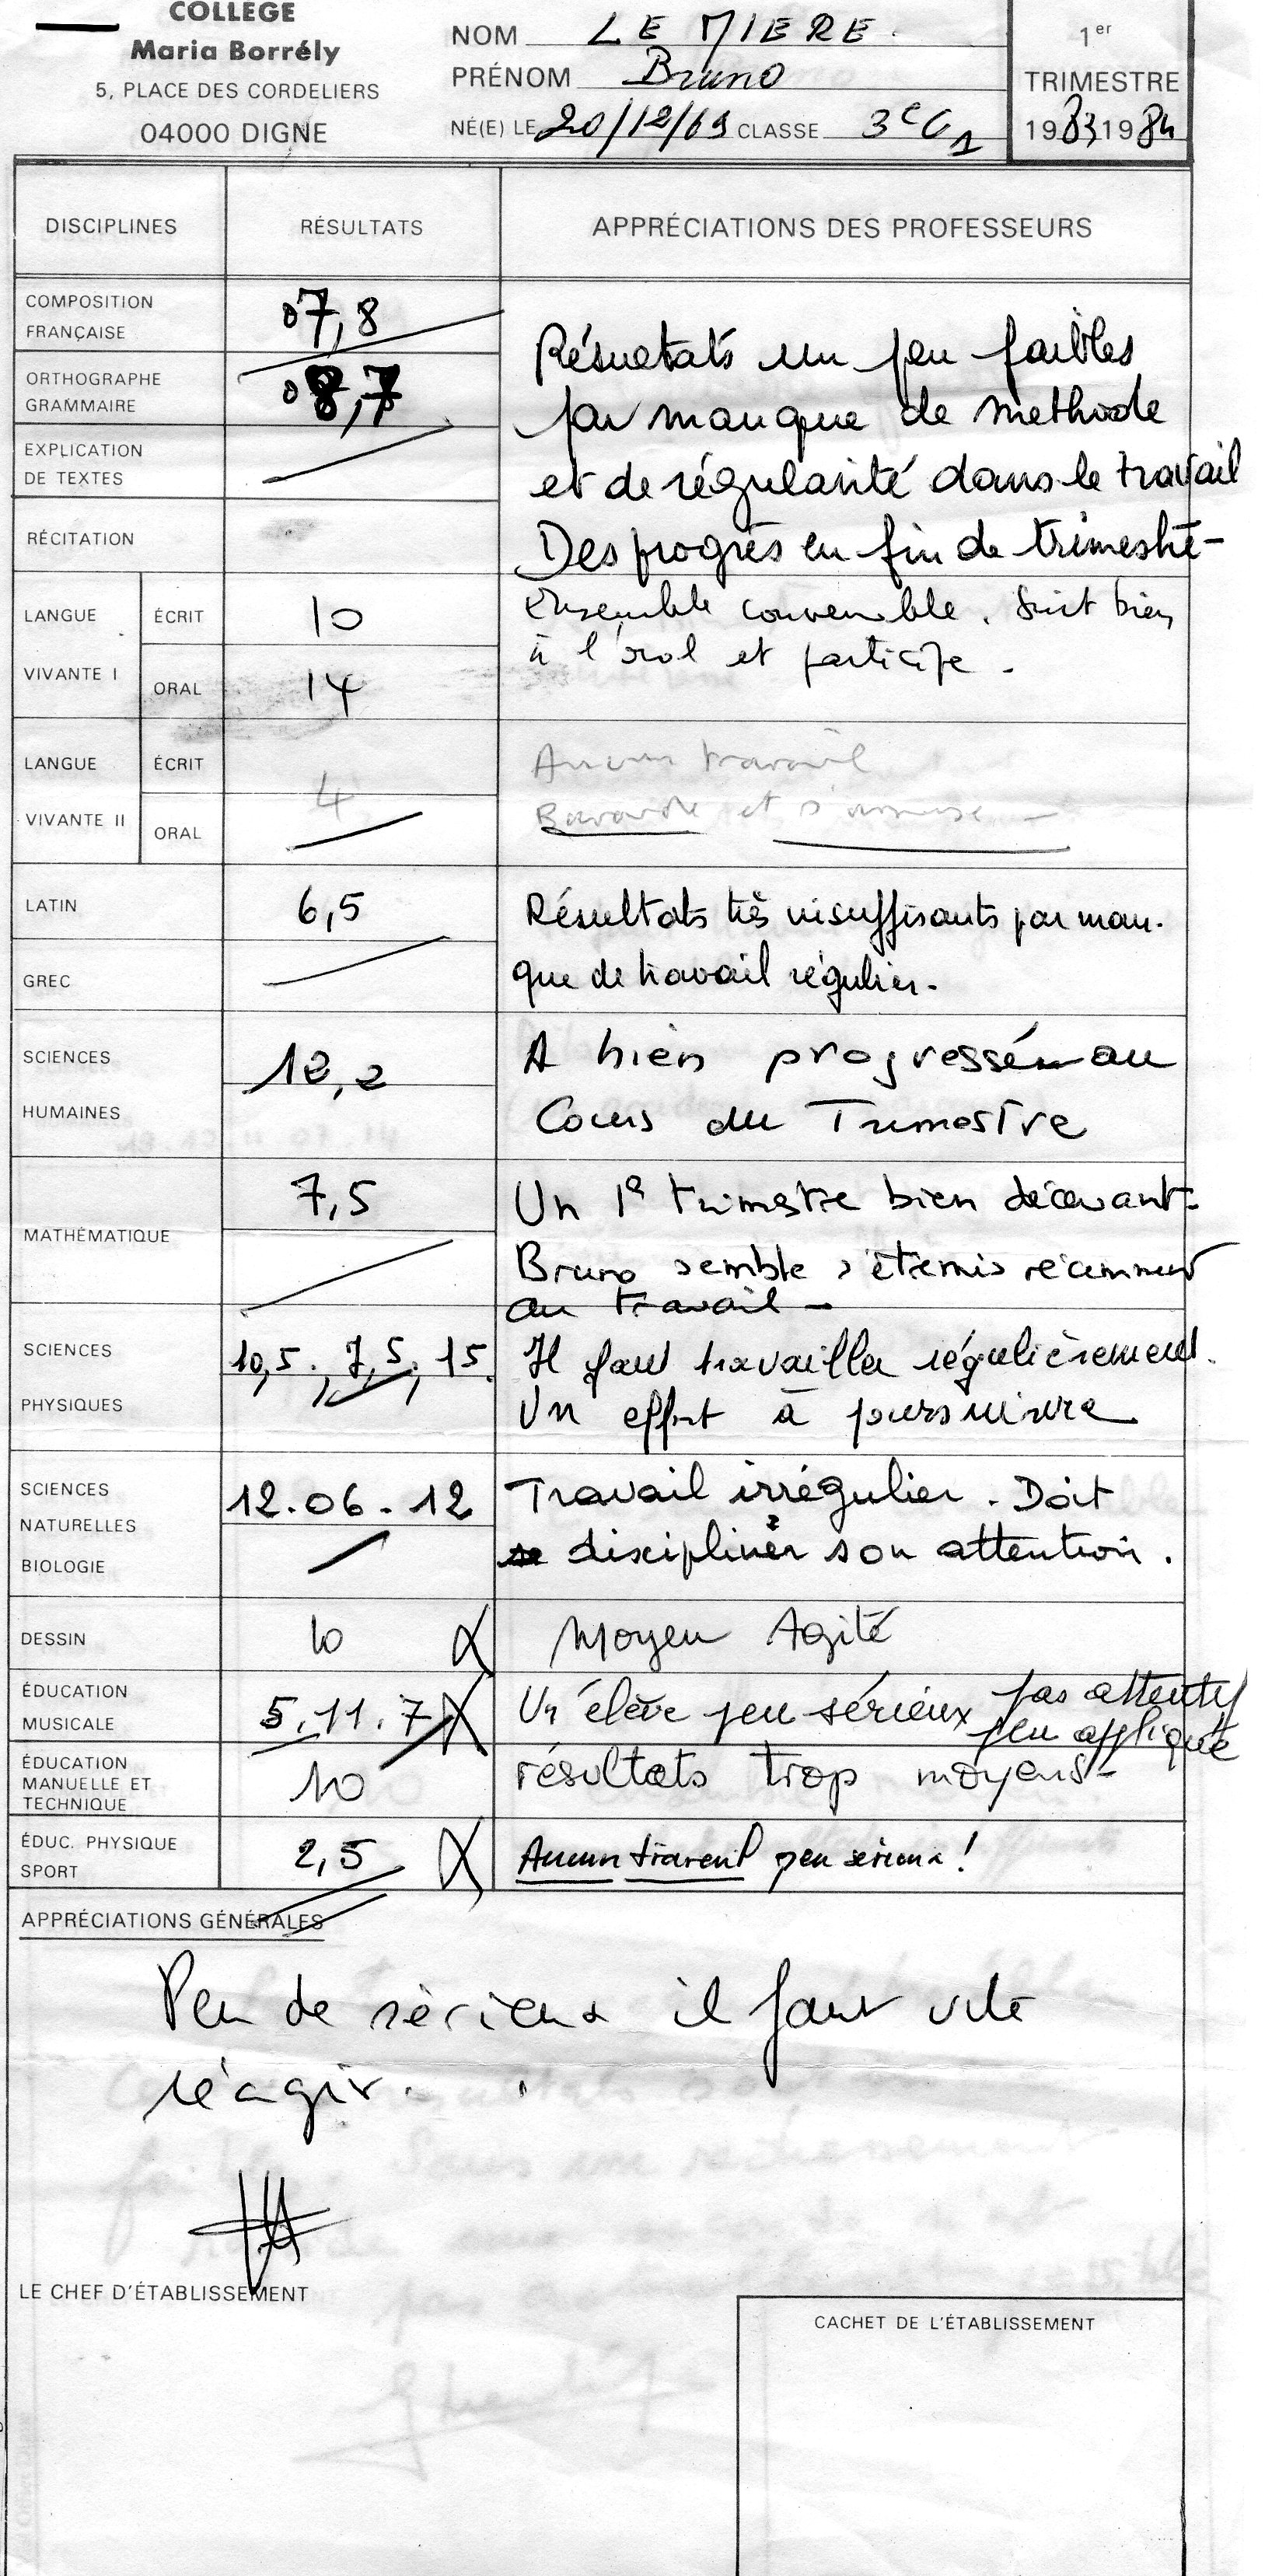 COLLÈGE
Maria Borrély
5, PLACE DES CORDELIERS
04000 DIGNE
NOM LE MIERE
PRÉNOM Bruno
NÉ(E) LE 20/12/69 CLASSE 3e C1
1er
TRIMESTRE
1983 1984
DISCIPLINES RÉSULTATS APPRÉCIATIONS DES PROFESSEURS
COMPOSITION
FRANÇAISE
07,8
ORTHOGRAPHE
GRAMMAIRE
08,7
EXPLICATION
DE TEXTES
RÉCITATION
Résultats un peu faibles
par manque de méthode
et de régularité dans le travail
Des progrès en fin de trimestre -
LANGUE
VIVANTE I
ÉCRIT
10
ORAL
14
Ensemble convenable. Suit bien
à l'oral et participe.
LANGUE
VIVANTE II
ÉCRIT
4
ORAL
Aucun travail
Bavarde et s'amuse -
LATIN
6,5
GREC
Résultats très insuffisants par man-
que de travail régulier.
SCIENCES
HUMAINES
12,2
A bien progressé au
Cours du Trimestre
MATHÉMATIQUE
7,5
Un 1e trimestre bien décevant.
Bruno semble s'être mis récemment
au travail -
SCIENCES
PHYSIQUES
10,5. 7,5. 15.
Il faut travailler régulièrement.
Un effort à poursuivre
SCIENCES
NATURELLES
BIOLOGIE
12.06.12
Travail irrégulier. Doit
discipliner son attention.
DESSIN
10
Moyen Agité
ÉDUCATION
MUSICALE
5.11.7
Un élève peu sérieux pas attentif
peu appliqué
ÉDUCATION
MANUELLE ET
TECHNIQUE
10
résultats trop moyens -
ÉDUC. PHYSIQUE
SPORT
2,5
Aucun travail peu serieux !
APPRÉCIATIONS GÉNÉRALES
Peu de sérieux il faut vite
réagir.
LE CHEF D'ÉTABLISSEMENT
CACHET DE L'ÉTABLISSEMENT